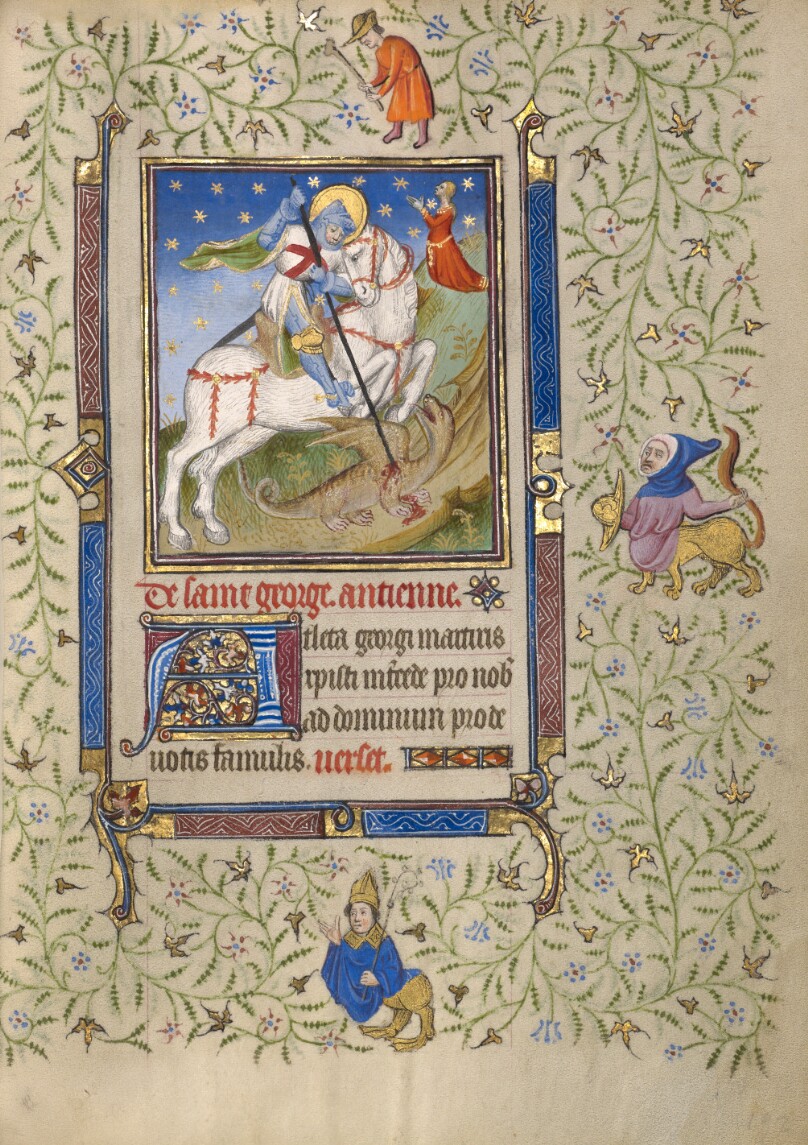 De saint george. antienne.
Atleta georgi martiris
xpisti mercede pro nob
ad dominum pro de
uotis famulis. uerset.